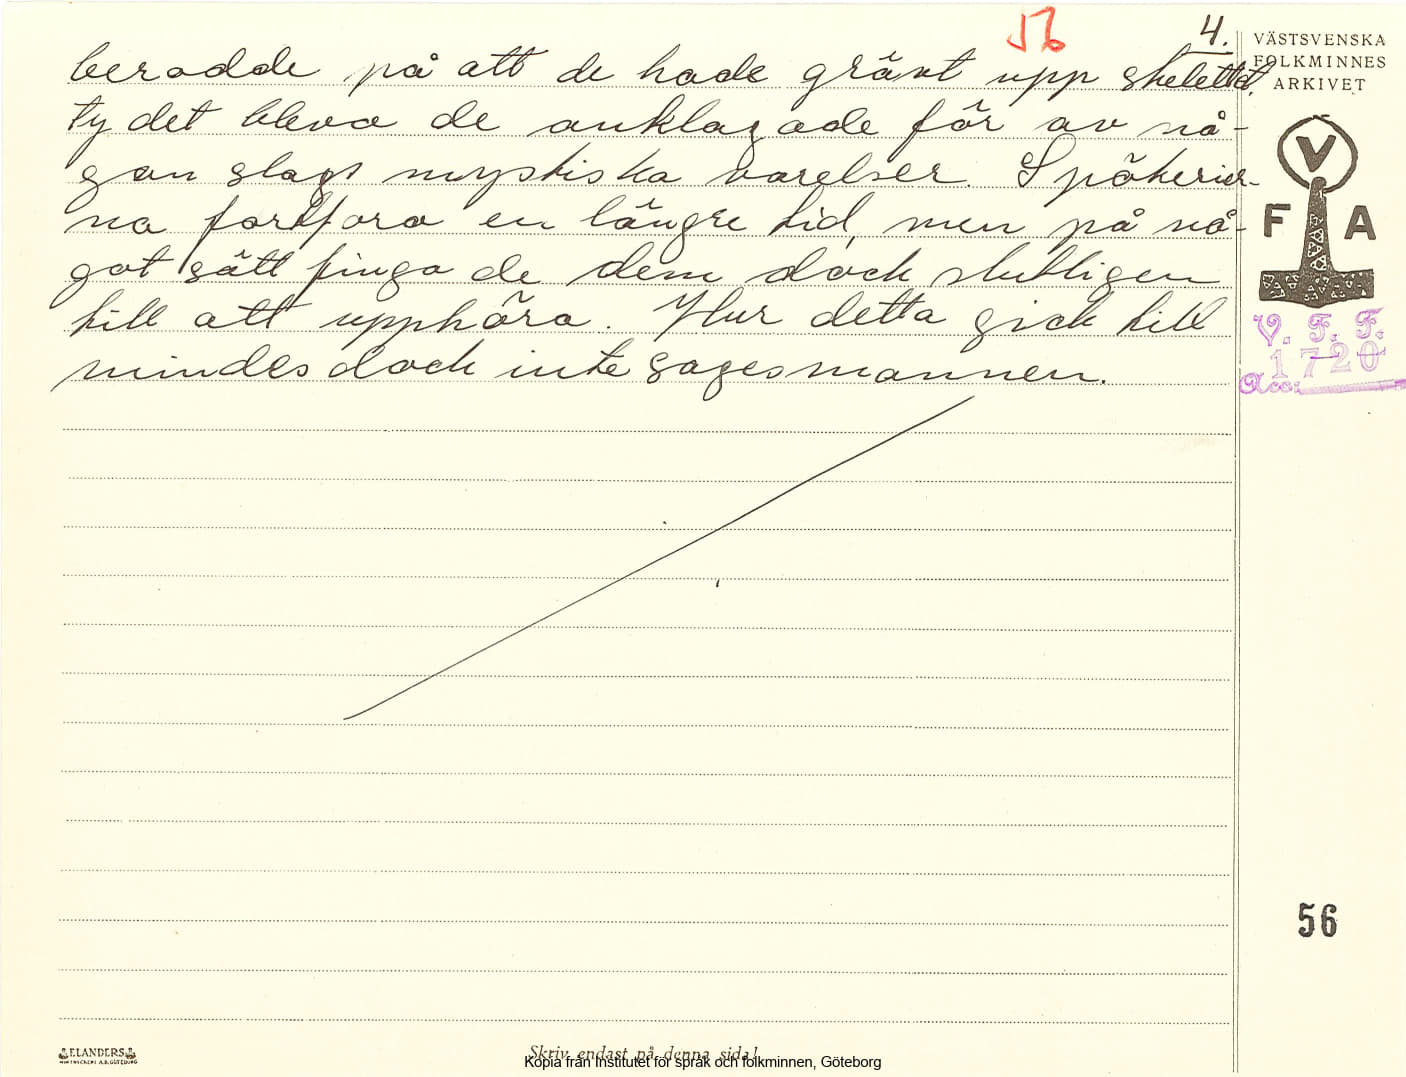 56
4.
berodde på att de hade grävt upp skelettet,
ty det blevo de anklagade för av nå-
gon slags mystiska varelser. Spökerier-
na fortforo en längre tid, men på nå-
got sätt fingo de dem dock slutligen
till att upphöra. Hur detta gick till
mindes dock inte sagesmannen.
VÄSTSVENSKA
FOLKMINNES
ARKIVET
V
F A
V. F. F.
1720
Acc:
56
ELANDERS
Skriv endast på denna sida!
Kopia från Institutet för språk och folkminnen, Göteborg